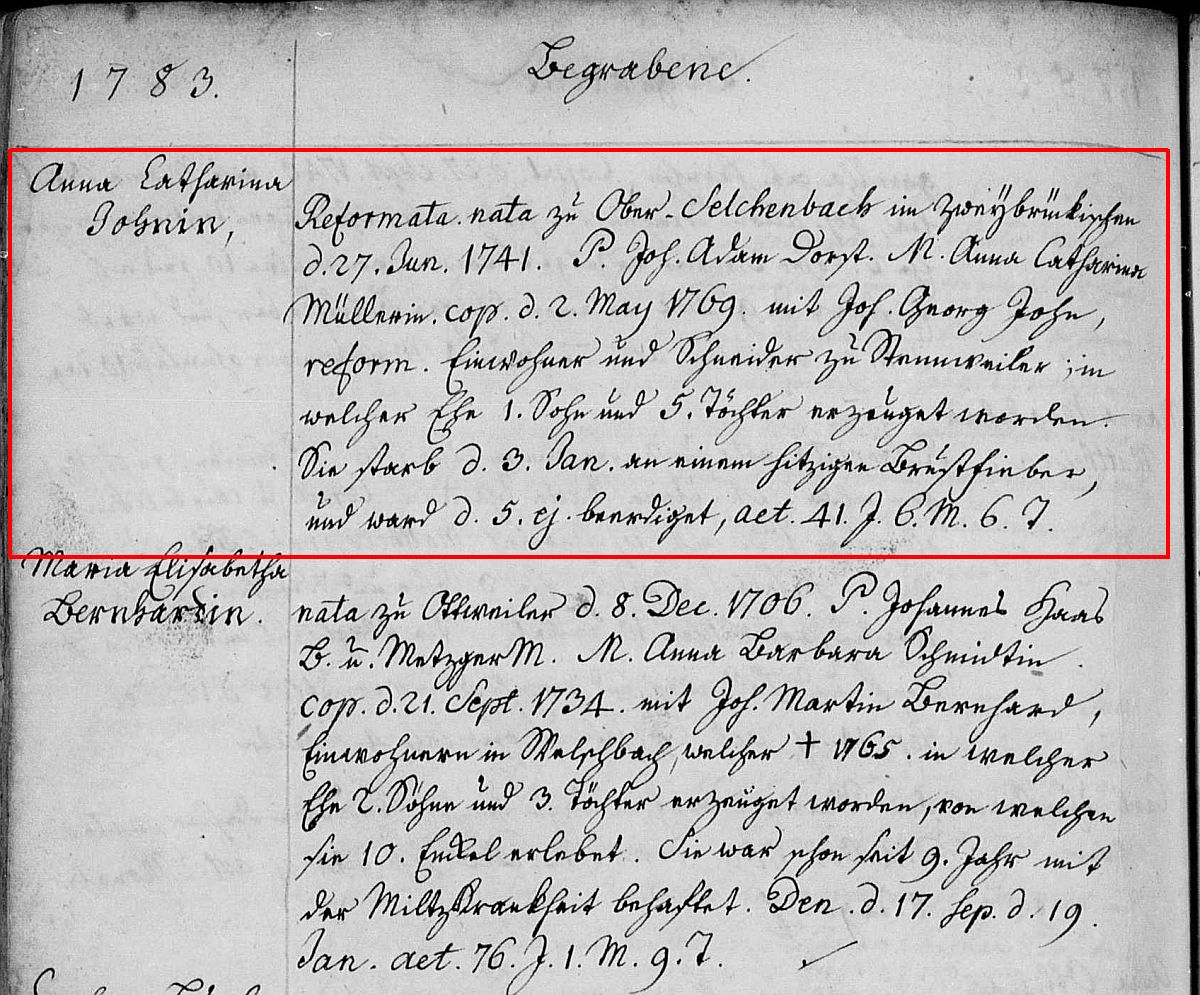 1783.
Begrabene.
Anna Catharina
Johnin,
Reformata. nata zu Ober-Selchenbach im Zweybrückischen
d. 27. Jun. 1741. P. Joh. Adam Dorst. M. Anna Catharina
Müllerin. cop. d. 2. May 1769. mit Joh. Georg John,
reform. Einwohner und Schneider zu Stennweiler; in
welcher Ehe 1. Sohn und 5. Töchter erzeuget worden.
Sie starb d. 3. Jan. an einem hitzigen Brustfieber,
und ward d. 5. ej. beerdiget, aet. 41. J. 6. M. 6. T.
Maria Elisabetha
Bernhardin.
nata zu Ottweiler d. 8. Dec. 1706. P. Johannes Haas
B. u. Metzger M. M. Anna Barbara Schmidtin
cop. d. 21. Sept. 1734. mit Joh. Martin Bernhard,
Einwohnern in Welschbach, welcher † 1765. in welcher
Ehe 2. Söhne und 3. Töchter erzeuget worden, von welchen
sie 10. Enckel erlebet. Sie war schon seit 9. Jahr mit
der Miltzkrankheit behafftet. Den. d. 17. sep. d. 19.
Jan. aet. 76. J. 1. M. 9. T.